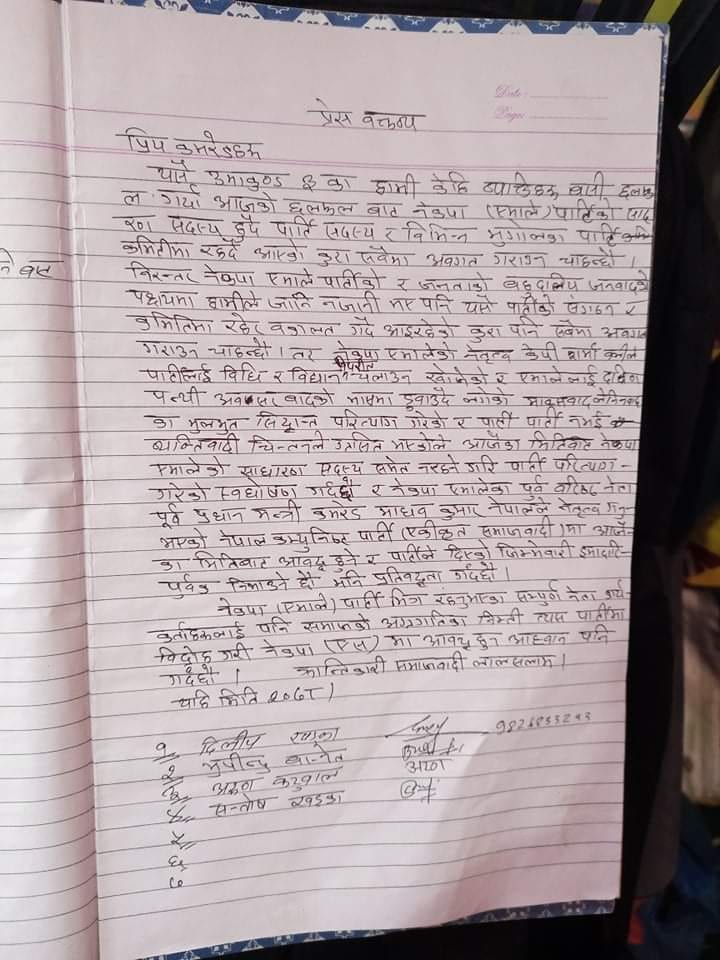 Date:
Page:
प्रेस वक्तव्य
प्रिय कमरेडहरू
यसै उमाकुण्ड ३ का हामी केहि व्यक्तिहरू बीच छलफ
ल गर्यौ आजको छलफल बाट नेकपा (एमाले) पार्टीको साधा
रण सदस्य हुदै पार्टि सदस्य र विभिन्न भुगोलका पार्टि
कमितिमा रहदै आएको कुरा सबैमा अवगत गराउन चाहन्छौ ।
निरन्तर नेकपा एमाले पार्टीको र जनताको बहुदलिय जनवादको
पक्षमा हामीले जानि नजानी भए पनि यसै पार्टीको संगठन र
कमितिमा रहेर वकालत गर्दै आइरहेको कुरा पनि सबैमा अवगत
गराउन चाहन्छौ । तर नेकपा एमालेको नेतृत्व केपी शर्मा ओलीले
पार्टीलाई विधि र विधान विपरीत चलाउन खोजेको र एमालेलाई दक्षिण
पन्थी अवसरवादको भासमा डुवाउदै लगेको मार्क्सवाद लेनिनवाद
का मुलभुत सिद्धान्त परित्याग गरेको र पार्टी पार्टी नभई
व्यक्तिवादी चिन्तनले ग्रसित भएकोले आजका मितिबाट नेकपा
एमालेको साधारण सदस्य समेत नरहने गरि पार्टी परित्याग-
गरेको स्वघोषणा गर्दछौ र नेकपा एमालेका पुर्व वरिष्ठ नेता
पूर्व प्रधान मन्त्री कमरेड माधव कुमार नेपालले नेतृत्व गनु-
भएको नेपाल कम्युनिष्ट पार्टी (एकीकृत समाजवादी) मा आजै-
का मितिबाट आवद्ध हुने र पार्टीले दिएको जिम्मेवारी इमान्दारि-
पुर्वक निभाउने छौ भनि प्रतिवद्धता गर्दछौ ।
नेकपा (एमाले) पार्टी भित्र रहनुभएका सम्पुर्ण नेता कार्य-
कर्ताहरूलाई पनि समाजको अग्रगतिका निम्ती त्यस पार्टीमा
विद्रोह गरी नेकपा (एस) मा आवद्ध हुन आह्वान पनि
गर्दछौ । क्रान्तिकारी समाजवादी लाल सलाम ।
यहि मिति २०७८ ।
१ दिलीप खड्का 9826853293
२ भुपीन्द्र बस्नेत
३ अरुण कटुवाल अरुण
४ सन्तोष खड्का
५
६
७